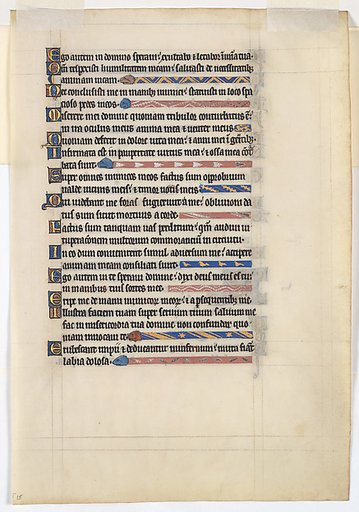 Ego autem in domino speraui: exultabo ⁊ letabor in mīa tua.
Qm̄ respexisti humilitatem meam: saluasti de necessitatib;
animam meam.
Nec conclusisti me in manib; inimici: statuisti in loco spa
cioso pedes meos.
Miserere mei domine quoniam tribulor: conturbatus ē
in ira oculus meus anima mea ⁊ uenter meus
Quoniam defecit in dolore uita mea: ⁊ anni mei ī gemitib;
Infirmata est in paupertate uirtus mea: ⁊ ossa mea cōtur
bata sunt
Super omnes inimicos meos factus sum opprobrium
ualde uicinis meis: ⁊ timor notis meis
Qui uidebant me foras fugierunt a me: obliuioni da
tus sum sicut mortuus a corde.
Factus sum tanquam uas perditum: qm̄ audiui ui
tuperacionem multorum commorancium in circuitu.
In eo dum conuenirent simul aduersum me: accipere
animam meam consiliati sunt.
Ego autem in te speraui domine: dixi deus meus es tu:
in manibus tuis sortes mee.
Eripe me de manu inimicorꝝ meorꝝ: ⁊ a ꝑsequentib; me.
Illustra faciem tuam super seruum tuum saluum me
fac in misericordia tua domine non confundar quo
niam inuocaui te.
Erubescant impii ⁊ deducantur in infernum: muta fiāt
labia dolosa.